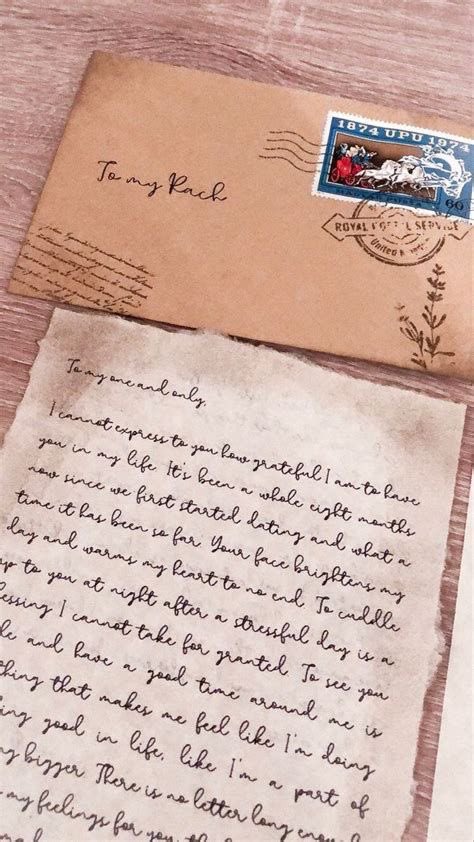 1874 UPU 1974
60
To my Rach
ROYAL POSTAL SERVICE
United
To my one and only,
I cannot express to you how grateful I am to have
you in my life. It's been a whole eight months
now since we first started dating and what a
time it has been so far. Your face brightens my
day and warms my heart to no end. To cuddle
up to you at night after a stressful day is a
essing I cannot take for granted. To see you
le and have a good time around me is
thing that makes me feel like I'm doing
ing good in life, like I'm a part of
ng bigger. There is no letter long enough
my feelings for you, th